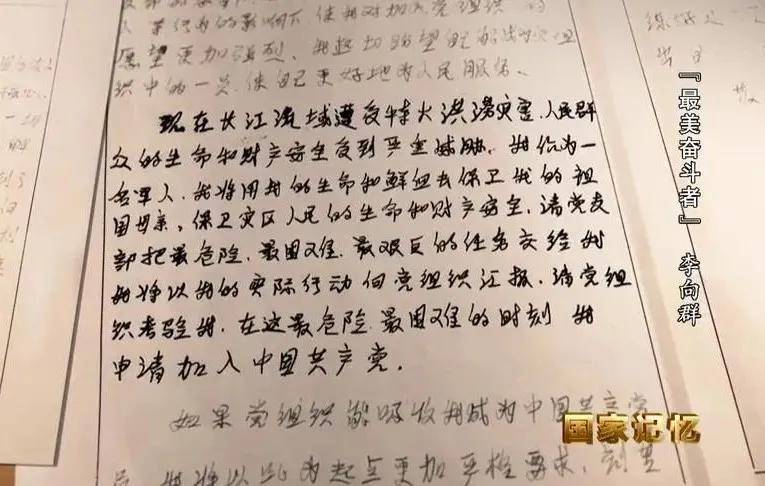 愿望更加强烈。我迫切盼望能够成为党组
织中的一员，使自己更好地为人民服务。
现在长江流域遭受特大洪涝灾害，人民群
众的生命和财产安全受到严重威胁，我作为一
名军人，我将用我的生命和鲜血去保卫我的祖
国母亲，保卫灾区人民的生命和财产安全，请党支
部把最危险、最困难、最艰巨的任务交给我
我将以我的实际行动向党组织汇报，请党组
织考验我，在这最危险、最困难的时刻 我
申请加入中国共产党。
如果党组织能吸收我成为中国共产党
员 我将以此为起点更加严格要求
『最美奋斗者』 李向群
国家记忆